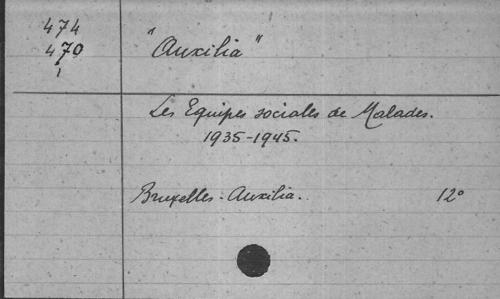 474
470
1
"Auxilia"
Les Equipes sociales de Malades.
1935-1945.
Bruxelles - Auxilia. 12°